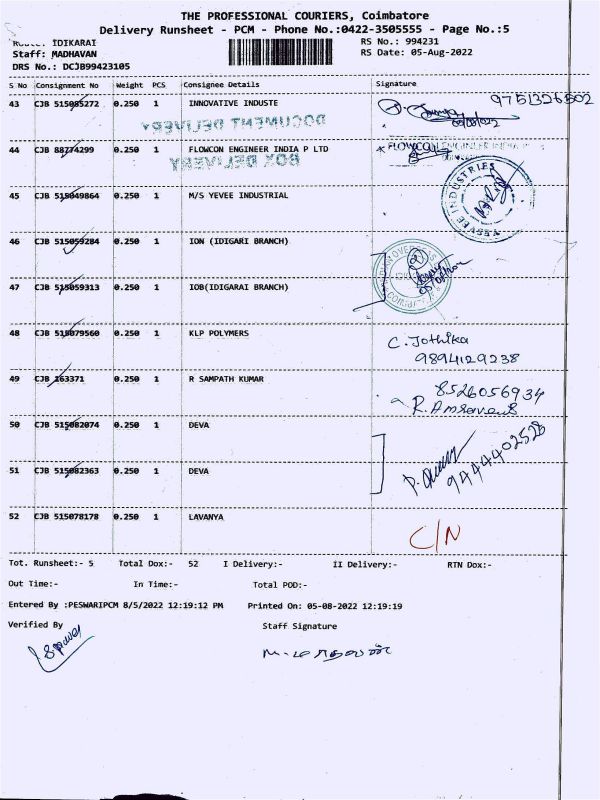 THE PROFESSIONAL COURIERS, Coimbatore
Delivery Runsheet - PCM - Phone No.:0422-3505555 - Page No.:5
Route: IDIKARAI RS No.: 994231
Staff: MADHAVAN RS Date: 05-Aug-2022
DRS No.: DCJB99423105
S No Consignment No Weight PCS Consignee Details Signature
43 CJB 515085272 0.250 1 INNOVATIVE INDUSTE 9751326502
DOCUMENT DELIVERY
44 CJB 88774299 0.250 1 FLOWCON ENGINEER INDIA P LTD
BOX DELIVERY
45 CJB 515049864 0.250 1 M/S YEVEE INDUSTRIAL YESVEE INDUSTRIES
46 CJB 515059284 0.250 1 ION (IDIGARI BRANCH)
47 CJB 515059313 0.250 1 IOB(IDIGARAI BRANCH)
48 CJB 515079560 0.250 1 KLP POLYMERS C. Jothika
9894129238
49 CJB 163371 0.250 1 R SAMPATH KUMAR 8526056934
50 CJB 515082074 0.250 1 DEVA
51 CJB 515082363 0.250 1 DEVA 9444402528
52 CJB 515078178 0.250 1 LAVANYA C/N
Tot. Runsheet:- 5 Total Dox:- 52 I Delivery:- II Delivery:- RTN Dox:-
Out Time:- In Time:- Total POD:-
Entered By :PESWARIPCM 8/5/2022 12:19:12 PM Printed On: 05-08-2022 12:19:19
Verified By Staff Signature